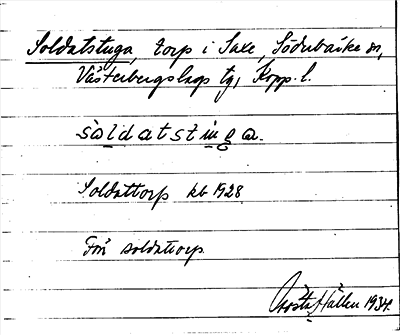 Soldatstuga, torp i Saxe, Söderbärke sn,
Västerbergslags tg, Kopp. l.
sòldatstùga.
Soldattorp kb 1928
Förr soldattorp.
Gösta Hallén 1934.